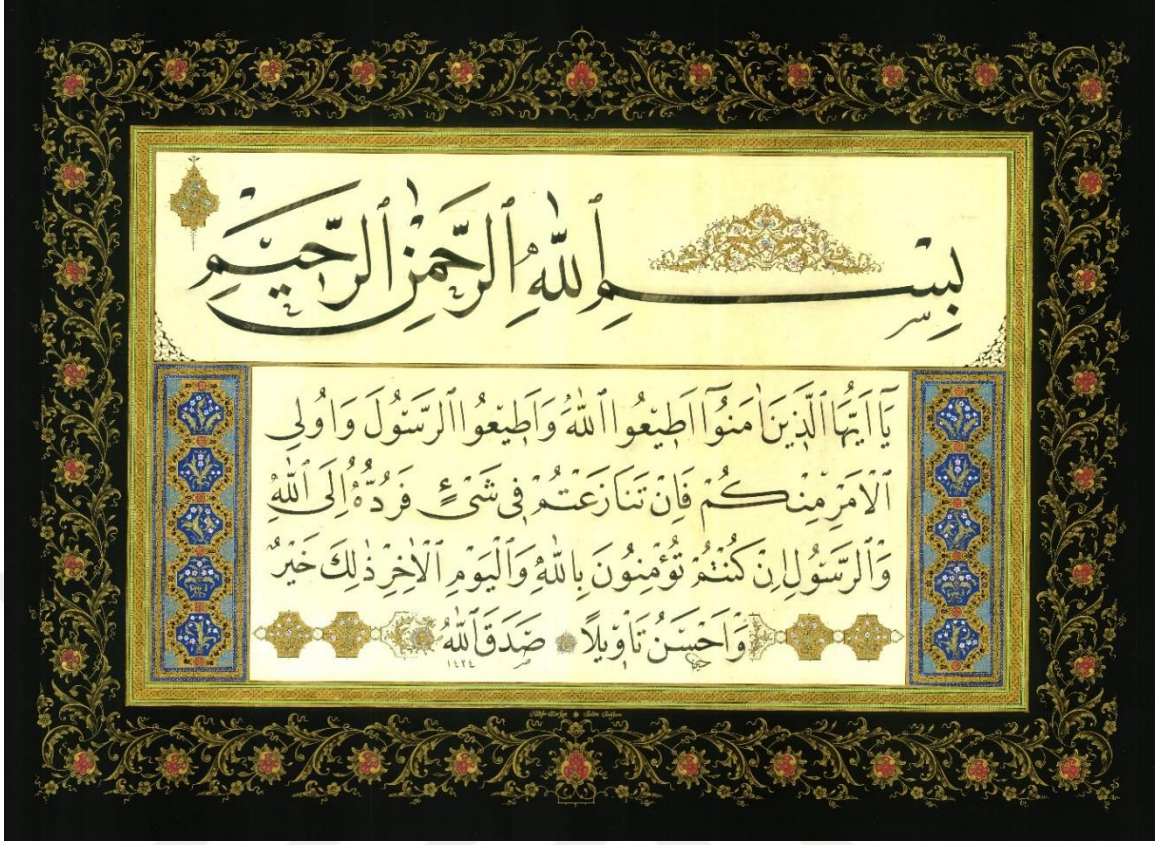 بِسْمِ ٱللّٰهِ ٱلرَّحْمٰنِ ٱلرَّحِيمِ
يَٓا اَيُّهَا ٱلَّذِينَ اٰمَنُٓوا اَطِيعُوا ٱللّٰهَ وَاَطِيعُوا ٱلرَّسُولَ وَاُولِى
ٱلْاَمْرِ مِنْكُمْ فَاِنْ تَنَازَعْتُمْ فِى شَىْءٍ فَرُدُّهُ اِلَى ٱللّٰهِ
وَٱلرَّسُولِ اِنْ كُنْتُمْ تُؤْمِنُونَ بِاللّٰهِ وَٱلْيَوْمِ ٱلْاٰخِرِ ذٰلِكَ خَيْرٌ
وَاَحْسَنُ تَاْوِيلًا صَدَقَ ٱللّٰهُ
١٤٢٤